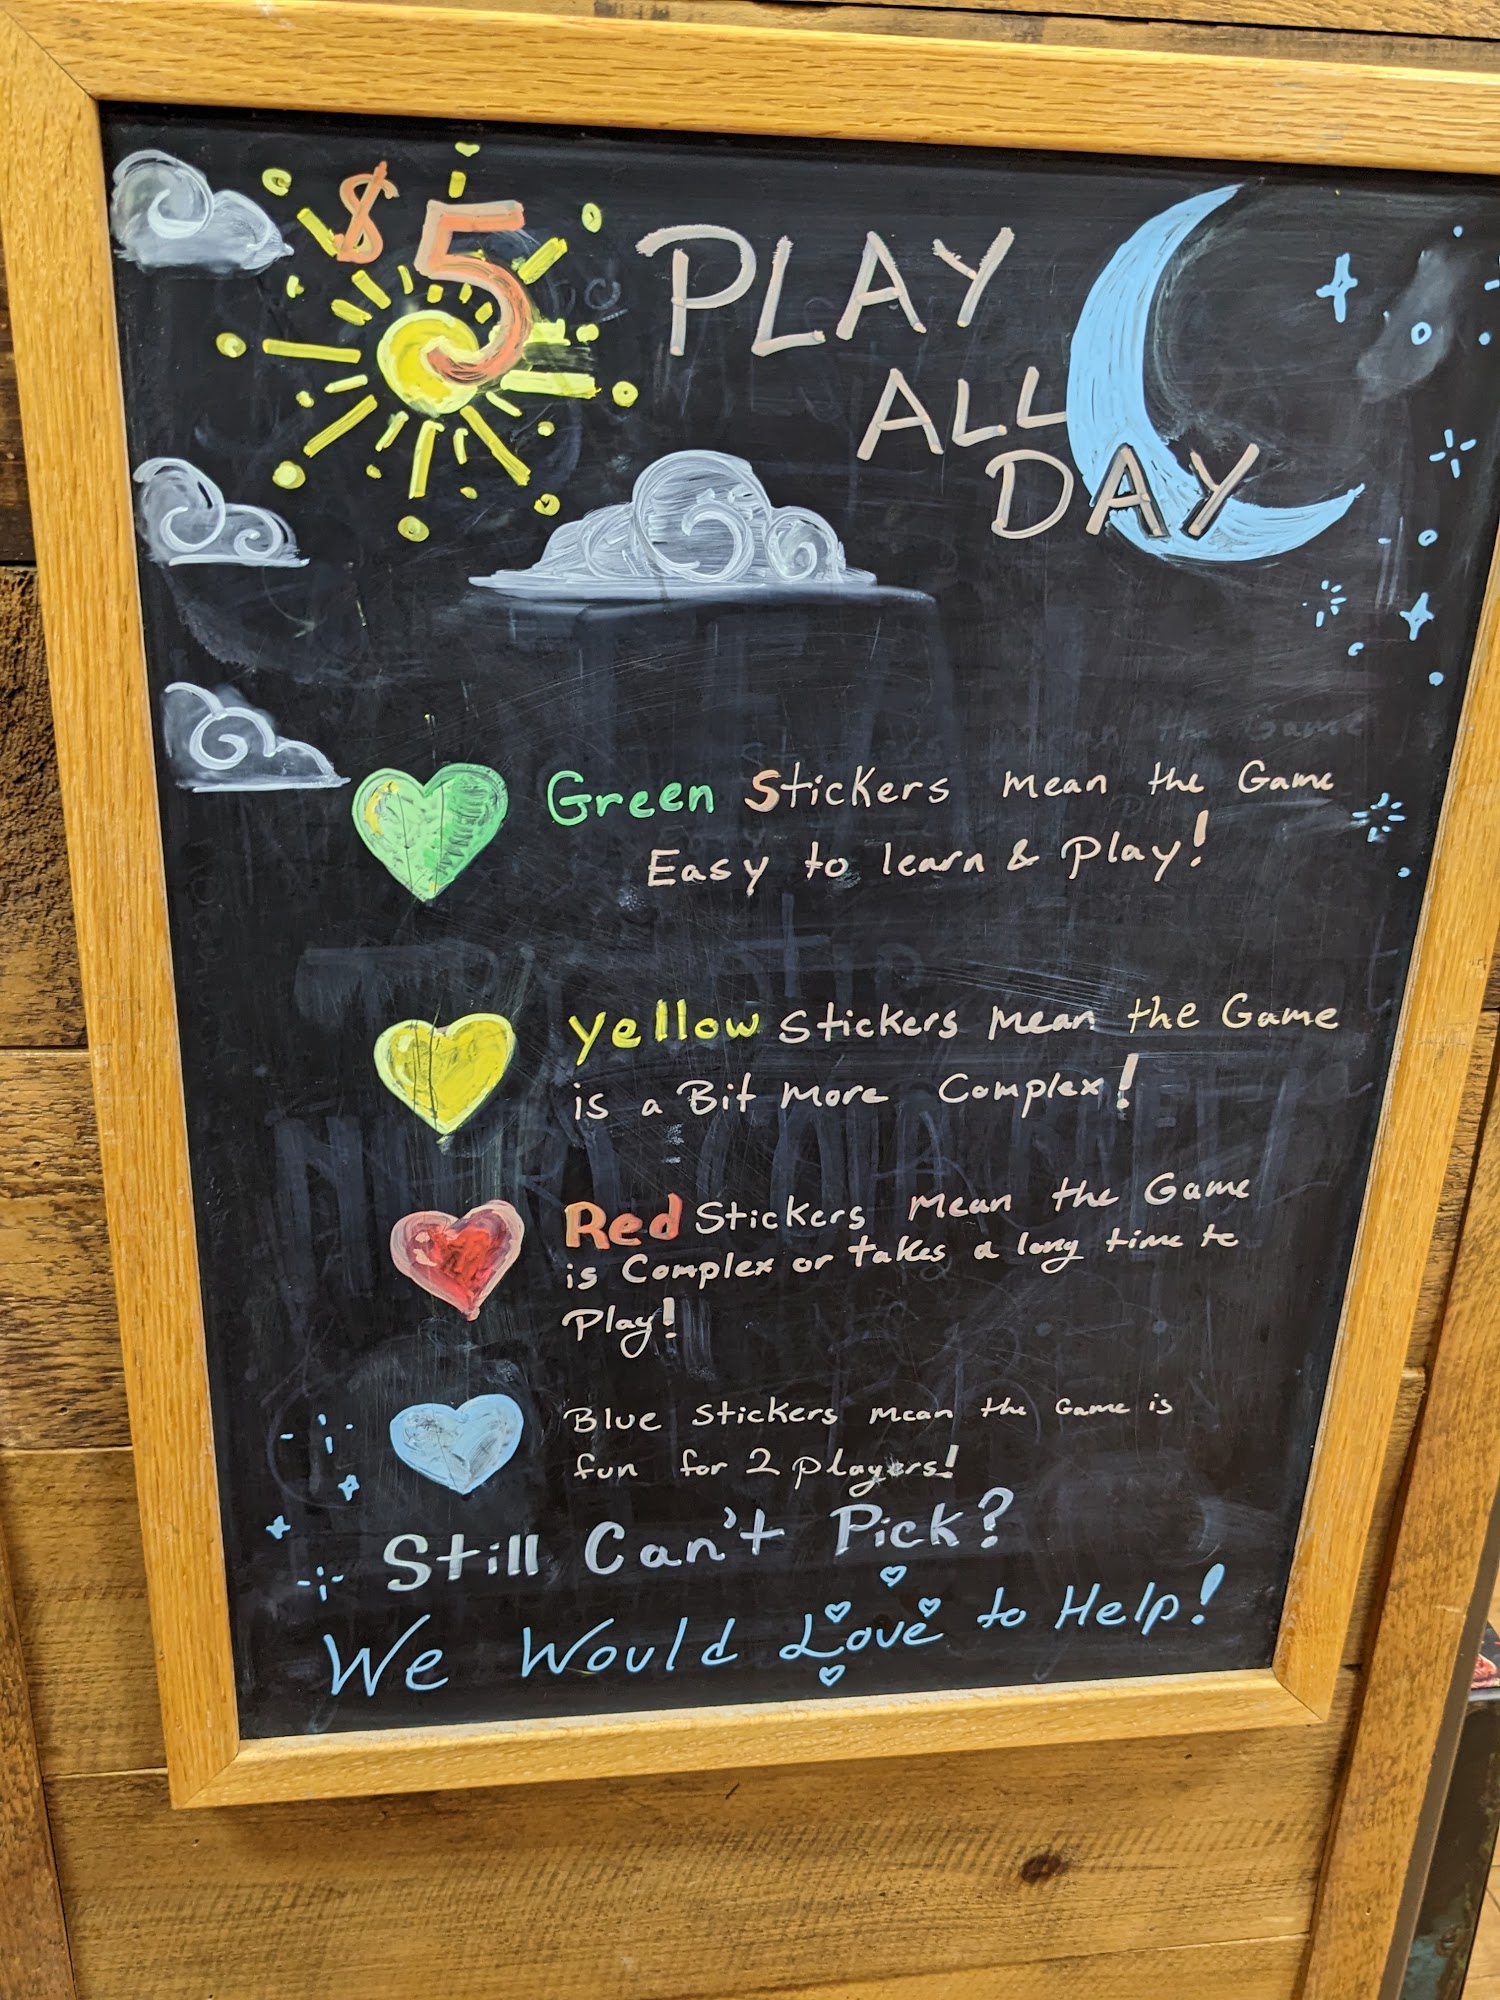 $5 PLAY
ALL
DAY
Green Stickers mean the Game
Easy to learn & Play!
Yellow Stickers Mean the Game
is a Bit More Complex!
Red Stickers Mean the Game
is Complex or takes a long time to
Play!
Blue Stickers Mean the Game is
fun for 2 players!
Still Can't Pick?
We Would Love to Help!